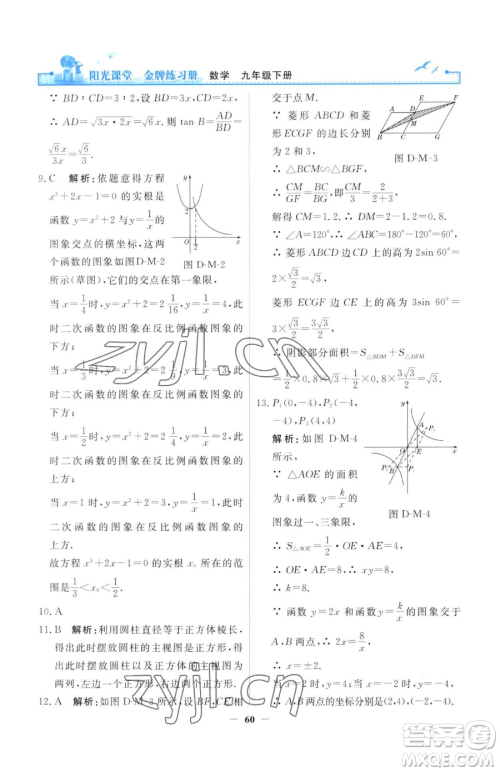 阳光课堂 金牌练习册 数学 九年级下册
∵ BD∶CD=3∶2,设 BD=3x,CD=2x,
∴ AD=√(3x·2x)=√6x,则 tan B=AD/BD=
√6x/3x=√6/3.
9. C 解析:依题意得方程
x³+2x-1=0 的实根是
函数 y=x²+2 与 y=1/x
的图象交点的横坐标,这
两个函数的图象如图D-M-2
所示(草图),它们的交点在第一象限,
当 x=1/4 时,y=x²+2=2 1/16,y=1/x=4,此
时二次函数的图象在反比例函数图象的
下方;
当 x=1/3 时,y=x²+2=2 1/9,y=1/x=3,此
时二次函数的图象在反比例函数图象的
下方;
当 x=1/2 时,y=x²+2=2 1/4,y=1/x=2,此
时二次函数的图象在反比例函数图象的
上方;
当 x=1 时,y=x²+2=3,y=1/x=1,此时
二次函数的图象在反比例函数图象的
上方.
故方程 x³+2x-1=0 的实根 x₀ 所在的范
围是 1/3<x₀<1/2.
10. A
11. B 解析:利用圆柱直径等于正方体棱长,
得出此时摆放圆柱的主视图为正方形,得
出此时摆放圆柱的主视图和俯视图都为
两列,左边一个正方形,右边两个正方形.
12. A 解析:如图 D-M-3,设 BF,CE 相
y
2
O
1/2
x
图 D-M-2
交于点 M.
∵ 菱形 ABCD 和菱
形 ECGF 的边长分别
为 2 和 3,
∴ △BCM∽△BGF,
∴ CM/GF=BC/BG,即CM/3=2/(2+3).
解得 CM=1.2. ∴ DM=2-1.2=0.8.
∵ ∠A=120°,
∴ 菱形 ABCD 边 CD 上的高为 2sin 60°=
2×√3/2=√3,
菱形 ECGF 边 CE 上的高为 3sin 60°=
3×√3/2=3√3/2.
∴ 阴影部分面积=S△BDM+S△DFM
=1/2×0.8×√3+1/2×0.8×3√3/2=√3.
A D E F M B C G
图 D-M-3
13. P₁(0,-4),P₂(-4,
-4),P₃(4,4)
解析:如图 D-M-4
所示,
∵ △AOE 的面积
为 4,函数 y=k/x 的
图象过一、三象限,
∴ S△AOE=1/2·OE·AE=4.
∴ OE·AE=8. ∴ xy=8.
∴ k=8.
∵ 函数 y=2x 和函数 y=k/x 的图象交于
A,B 两点,∴ 2x=8/x.
∴ x=±2.
∴ A,B 两点的坐标分别是(2,4),(-2,-4).
图 D-M-4
60
zyjl.cn
zyjl.cn